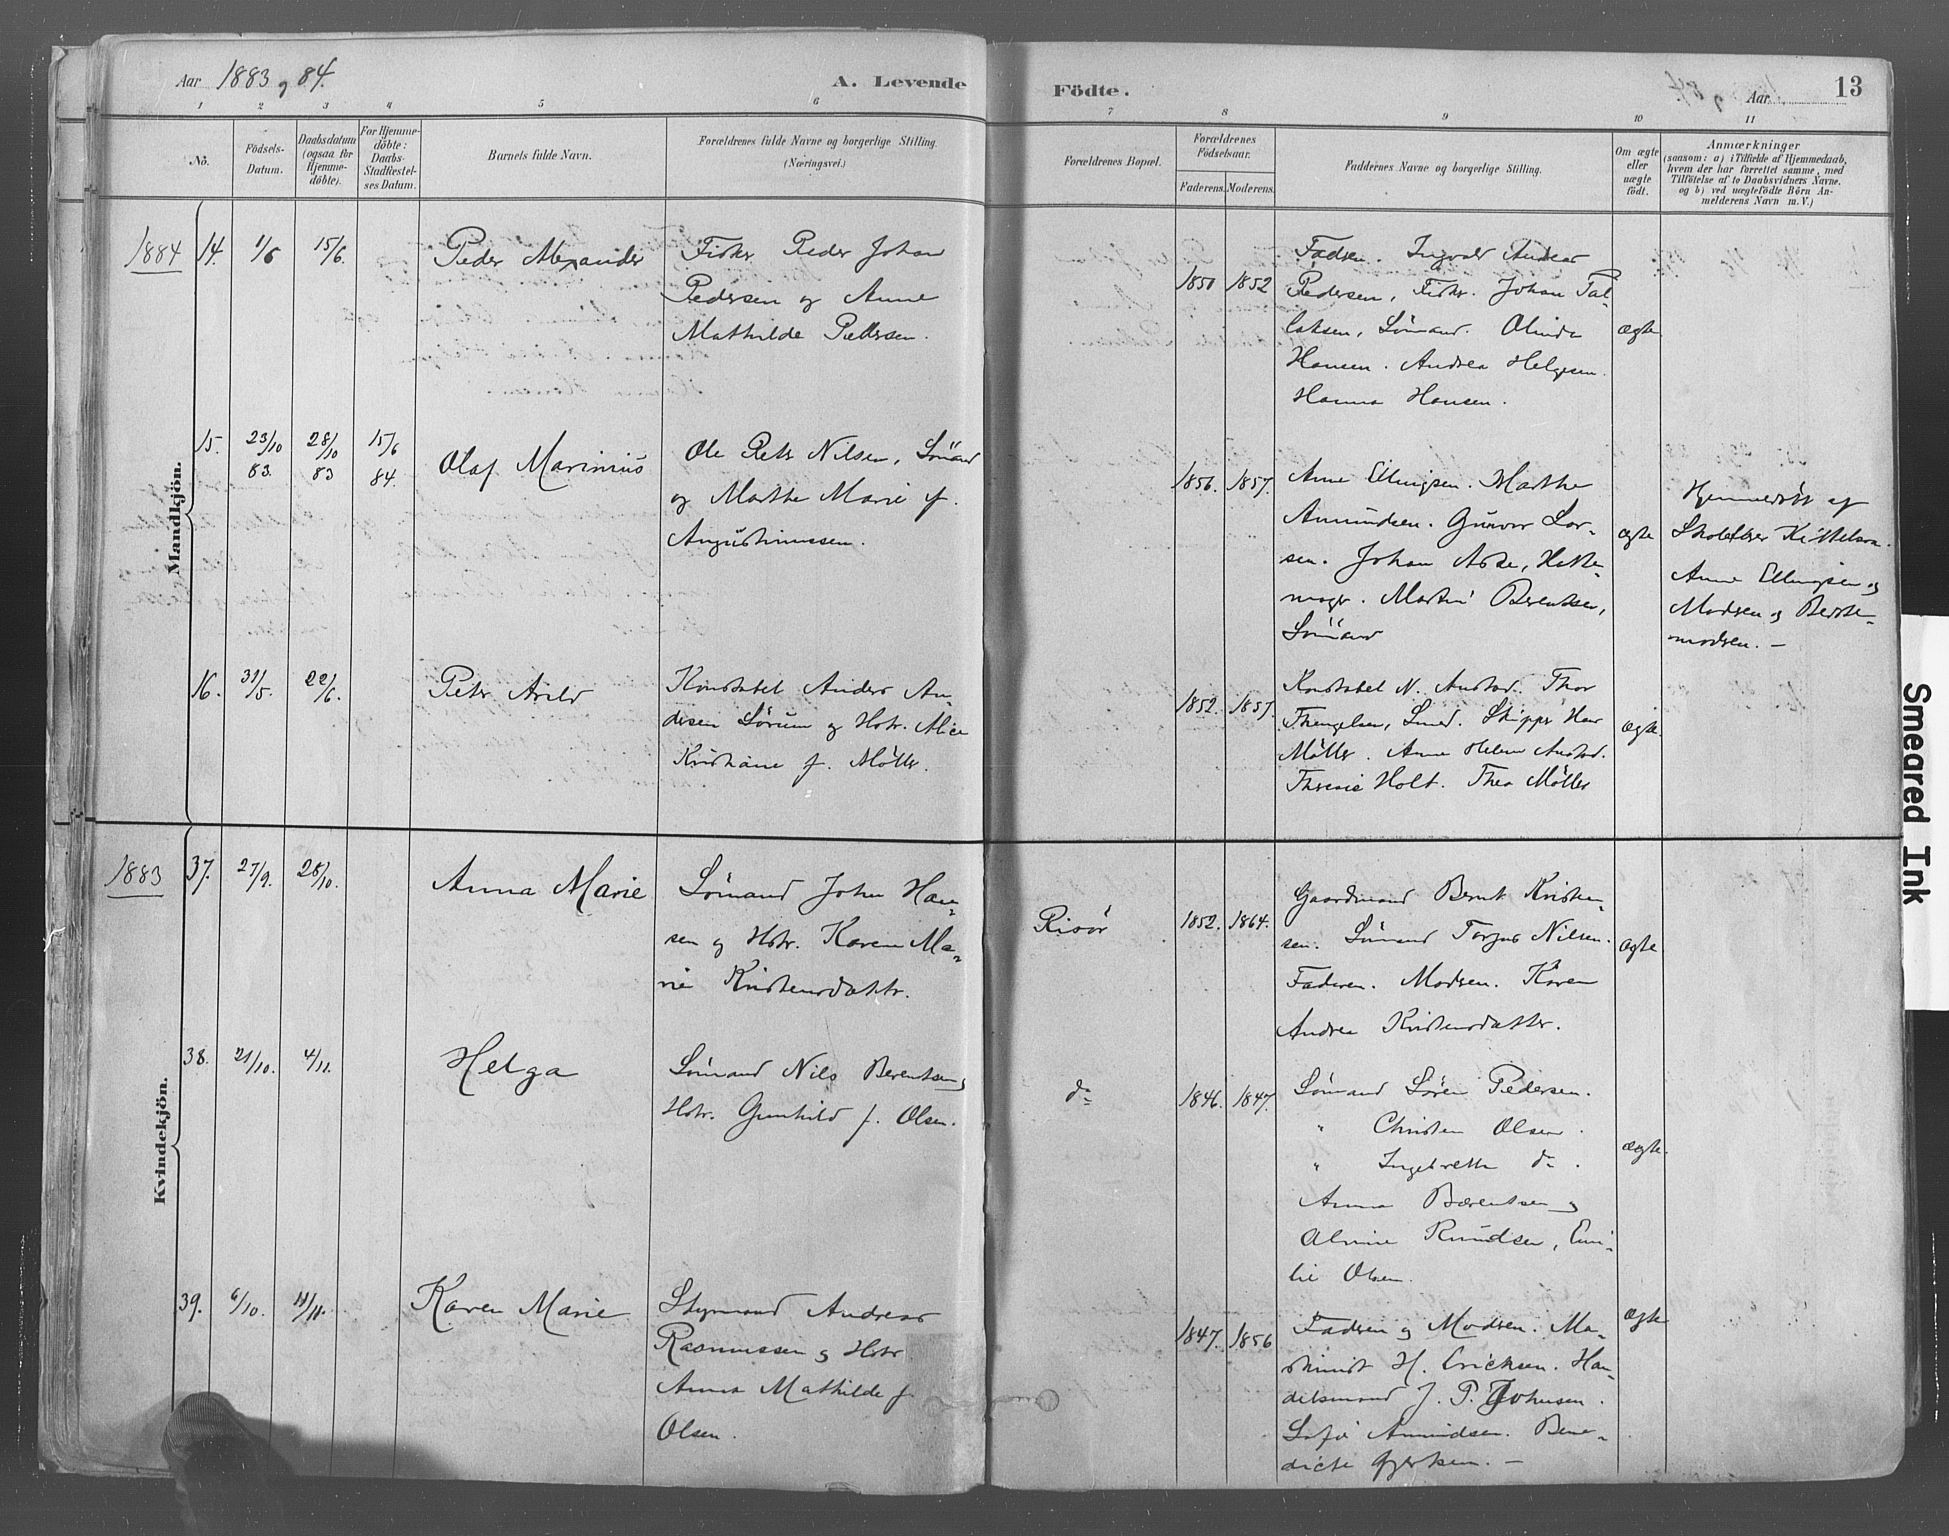 Aar 1883 og 84.
A. Levende Födte.
Aar
13
1 2 3 4 5 6 7 8 9 10 11
No.
Födsels-
Datum.
Daabsdatum
(ogsaa for
Hjemme-
döbte).
For Hjemme-
döbte:
Daabs-
Stadfæstel-
ses Datum.
Barnets fulde Navn.
Forældrenes fulde Navne og borgerlige Stilling.
(Næringsvei.)
Forældrenes Bopæl.
Forældrenes
Födselsaar.
Faderens. Moderens.
Faddernes Navne og borgerlige Stilling.
Om ægte
eller
uægte
födt.
Anmærkninger
(saasom: a) i Tilfælde af Hjemmedaab,
hvem der har forrettet samme, med
Tilföielse af to Daabsvidners Navne.
og b) ved uægtefödte Börn An-
melderens Navn m. V.)
Mandkjön.
1884 14. 1/6 15/6. Peder Alexander
Fisker Peder Johan
Pedersen og Anne
Mathilde Pettersen.
1850 1852
Fadren. Ingvald Andreas
Pedersen, Fisker. Johan Tal-
laksen, Sömand. Olinda
Hansen. Andrea Helgesen.
Hanna Hansen.
ægte
15. 23/10 83. 28/10 83 15/6 84. Olaf Marinius
Ole Peter Nilsen, Sömand
og Marthe Marie f.
Augustinussen.
1856. 1857.
Anne Ellingsen. Marthe
Amundsen. Gunvor Lar-
sen. Johan Aase, Hatte-
mager. Martin Berentsen,
Sömand
ægte
Hjemmedöbt af
Skolelærer Kittelsen.
Anne Ellingsen og
Madsen og Berthe-
madsen. —
16. 31/5. 22/6. Peter Arild
Konstabel Anders An-
dersen Sörum og Hstr. Alice
Kristiane f. Möller.
1852. 1857.
Konstabel N. Austad. Thor
Thengelsen, Smed. Skipper Har
Möller. Anne Helene Austad.
Therese Holt. Thea Möller
ægte.
Kvindekjön.
1883 37. 27/9. 28/10. Anna Marie
Sömand John Han-
sen og Hstr. Karen Ma-
rie Kristensdatter.
Risör
1852. 1864.
Gaardmand Bernt Kristen-
sen. Sömand Torjus Nilsen.
Faderen. Modren. Karen
Andrea Kristensdatter.
ægte
38. 21/10. 4/11. Helga
Sömand Nils Berentsen og
Hstr. Gunhild f. Olsen.
do
1846. 1847.
Sömand Sören Pedersen.
" Christen Olsen.
" Ingebrette do.
Anna Bærentsen og
Alvine Knudsen, Emi-
lie Olsen.
ægte.
39. 6/10. 11/11. Karen Marie
Styrmand Andreas
Rasmussen og Hstr.
Anna Mathilde f.
Olsen.
1847. 1856
Fadren og Modren. Ma-
skinist H. Ericksen. Han-
delsmand J. P. Johnsen.
Sofie Amundsen. Bene-
dicte Gjertsen. —
ægte
Smeared Ink